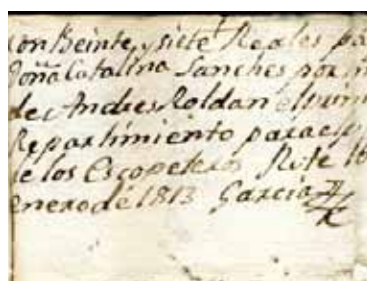 con Beinte, y siete Reales pa
Doña Catalina Sanches por
de Andres Roldan el
Repartimiento para el
de los Escopeteros Rute 16
enero de 1813 Garcia